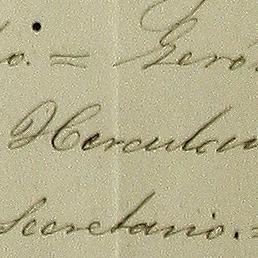 io. = Geró
Herculan
Secretario. =